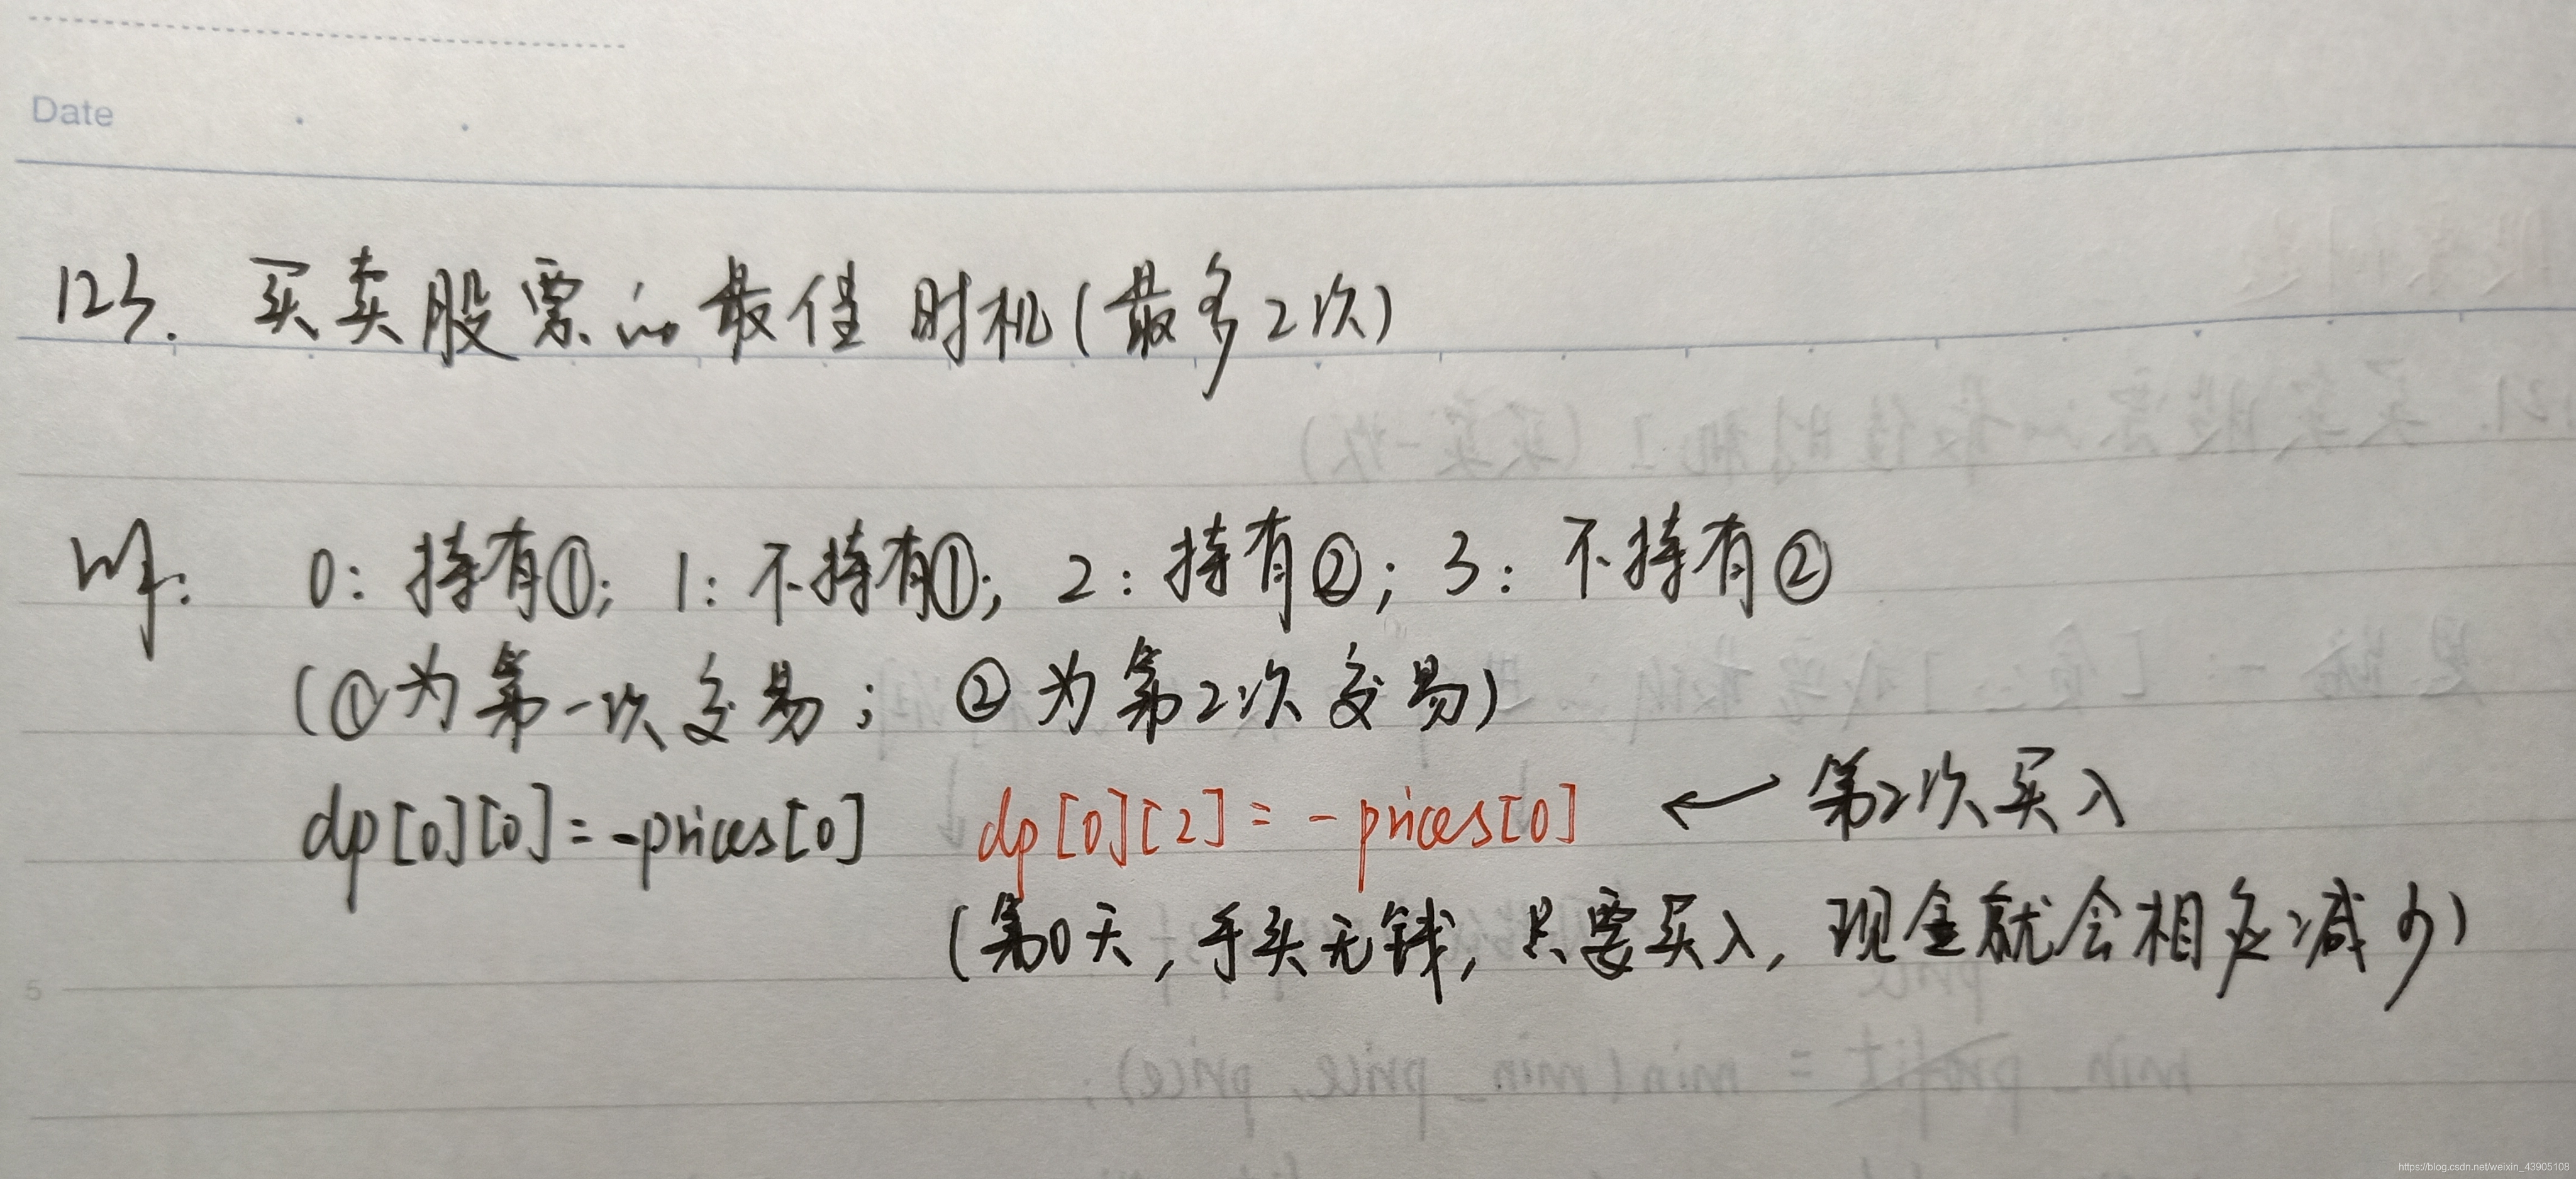 Date
123. 买卖股票的最佳时机(最多2次)
0: 持有①; 1: 不持有①; 2: 持有②; 3: 不持有②
(①为第一次交易; ②为第2次交易)
dp[0][0]=-prices[0] dp[0][2]=-prices[0] ← 第2次买入
(第0天,手头无钱,只要买入,现金就会相应减少)
5
min_profit = min(min_price, price);
https://blog.csdn.net/weixin_43905108